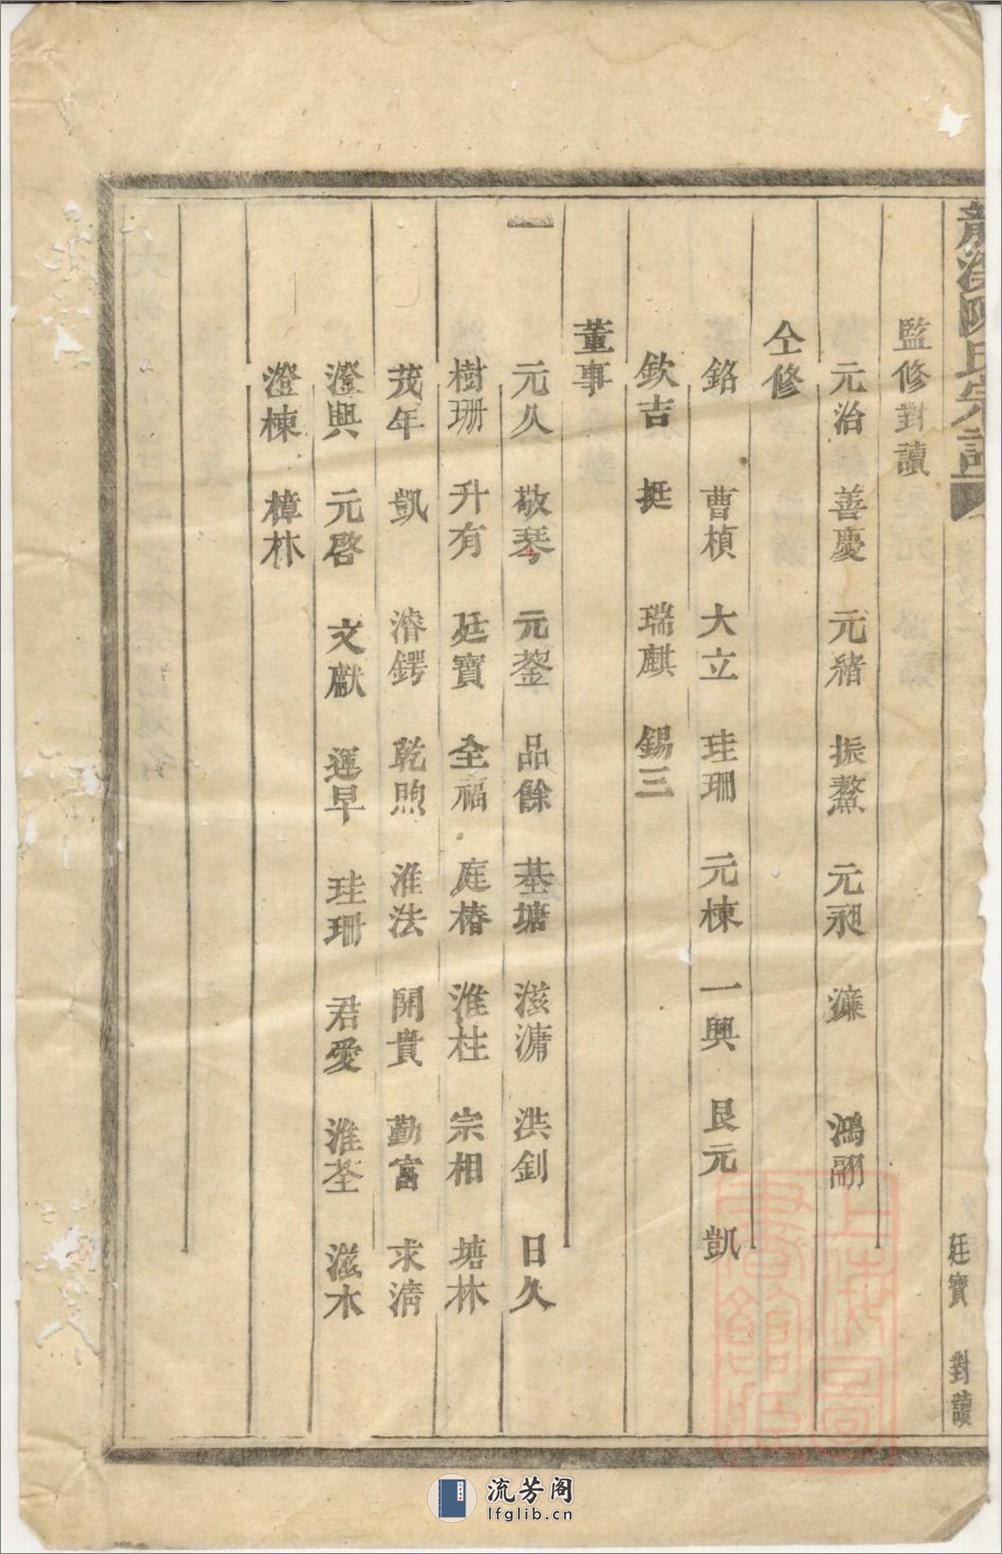 陳氏宗譜
廷寶 對讀
監修對讀
元治 善慶 元緒 振鰲 元昶 濂 鴻翮
仝修
銘 曹楨 大立 珪珊 元棟 一興 艮元 凱
欽吉 挺 瑞麒 錫三
董事
元久 敬琴 元鋆 品餘 基塘 滋湳 洪釗 日久
樹珊 升有 廷寶 全福 庭椿 淮柱 宗相 塘林
茂年 凱 濬鍔 乾煦 淮法 開貴 勤富 求清
澄興 元啓 文獻 運早 珪珊 君愛 淮荃 滋木
澄棟 樟林
上海圖書館藏
流芳阁
lfglib.cn